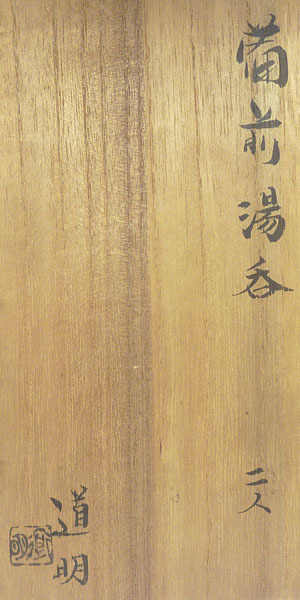 備前湯呑
二人
道明